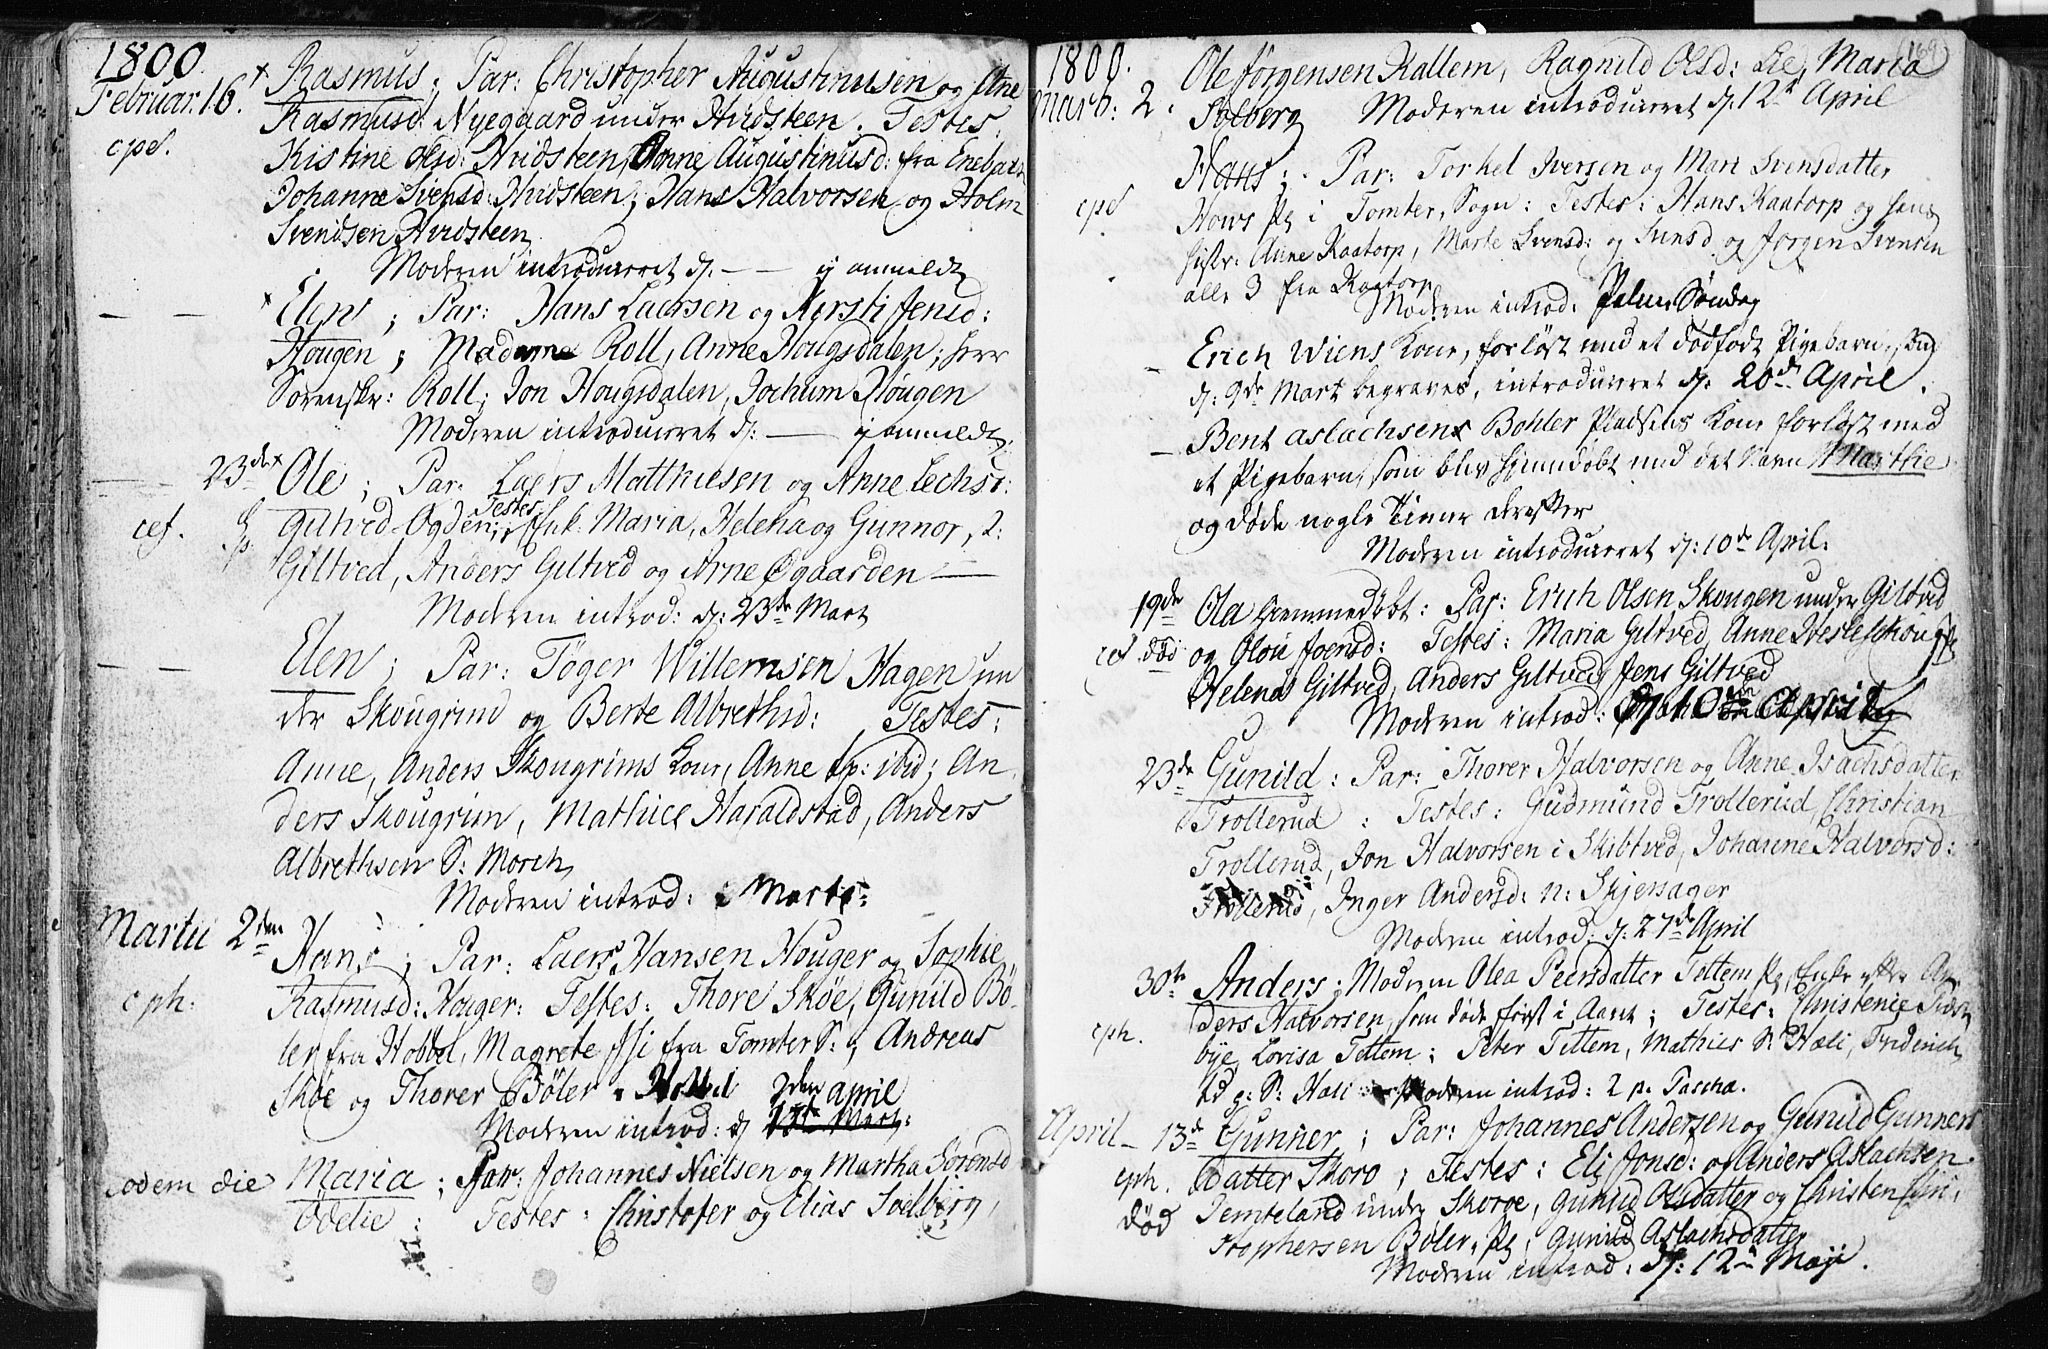 1800.
Februar. 16. Rasmus; Par: Christopher Augustinusen og Ane
Rasmusd: Nyegaard under Hvidsteen. Testes:
cpd. Kistine Olsd: Hvidsteen, Anne Augustinusd: fra Enebak
Johanne Svensd: Hvidsteen; Hans Halvorsen og Holm
Svendsen Hvidsteen
Moderen introduceret d. — — ej anmeldt
— — Elen; Par: Hans Laersen og Kirsti Jensd:
Hougen; Madame Roll, Anne Hougsdalen, Herr
Sorenskr: Roll, Jon Hougsdalen, Jochum Hougen
Moderen introduceret d: — ej anmeldt
— 23de Ole; Par: Laers Matthiesen og Anne
cef. Giltved Ogden; Testes: Enk: Maria, Helena og Gunnor, 2:
Giltved, Anders Giltved og Arne Øgaarden —
Moderen introd: d: 23de Mart
— — Elen; Par: Töger Willemsen Hagen un
der Skougrim og Berte Albrethsd: Testes:
Anne, Anders Skougrims Kone, Anne p: ibid; An
ders Skougrim, Mathies Haraldstad, Anders
Albrethsen S: Morch
Moderen introd: : Marts:
Martii 2den Hans; Par: Laers Hansen Houger og Sophie
cph. Rasmusd: Houger: Testes: Thore Skøe, Gunild Bö-
ler fra Hobbel, Magrete fra Tomter S:, Andreas
Skøe og Thorer Böler . Hobbel
Moderen introd: d 2den April 23de Mart:
eodem die Maria; Par: Johannes Nielsen og Martha Sörensd
Ödelie: Testes: Christofer og Elias Solberg,
1800. (169)
Marti: 2. Ole Jörgensen Kallem, Ragnild Olsd: Lie, Maria
Solberg Moderen introduceret d. 12te April
Hans; Par: Torkel Iversen og Mari Svensdatter
cpd Hows Pl i Tomter, Sogn: Testes: Hans Kaatorp og hans
Hustr: Anne Kaatorp, Marte Svensd: og Svensd og Jörgen Svensen
alle 3 fra Kaatorp
Moderen introd: Palme Söndag
— Erich Wiens Kone, forlöst med et dödfödt Pigebarn,
d: 9de Mart begravet, introduceret d: 20de April.
— Bent Aslachsens Bohler Pladsens Kone forlöst med
et Pigebarn, som blev hjemmedöbt med det Navn Marthe
og döde nogle Timer derefter
Moderen introduceret d: 10de April:
19de Ola hiemmedöbt: Par: Erich Olsen Skougen under Giltved
cef. död og Oloü Joensd: Testes: Maria Giltved, Anne
Helena Giltved, Anders Giltved, Jens Giltved
Moderen introd: d: 10de April
23de Gunild: Par: Thorer Halvorsen og Anne Isachsdatter
Trollerud: Testes: Gudmund Trollerud, Christian
Trollerud, Jon Halvorsen i Skibtved, Johanne Halvorsd:
Trollerud, Inger Andersd: n: Skjersager
Moderen introd: d: 27de April
30te Anders; Moderen Olea Peersdatter Tottem Pl, Enke efter An
cph. ders Halvorsen, som döde först i Aaret; Testes: Christenie
bye, Lovisa Tottem; Peter Tottem, Mathies S: Hæli, Friderich
S: Hæli Moderen introd: 2 p. Pascha.
April — 13de Gunner; Par: Johannes Andersen og Gunild Gunners
cph. datter Skoro; Testes: Eli Jonsd: og Anders Aslachsen
död Temteland under Skoroe, Gunild Olsdatter og Christen Chri-
stophersen Böler, Pl, Gunild Aslachsdatter
Moderen introd: d: 12te Maji.